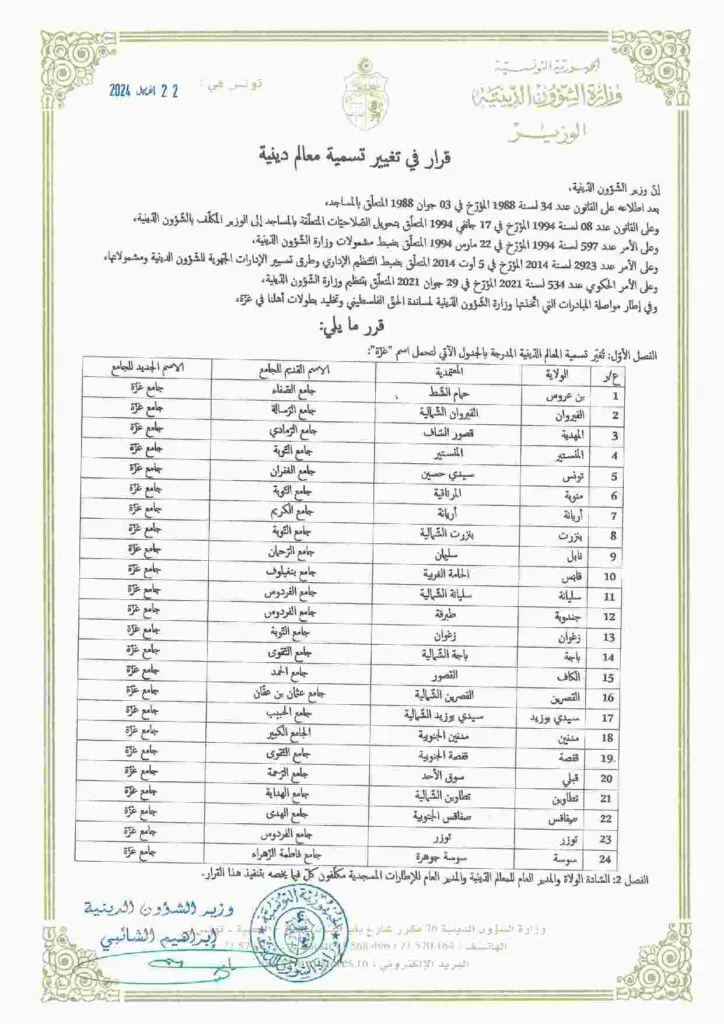 الجمهورية التونسية
وزارة الشؤون الدينية
الوزير
تونس في : 22 افريل 2024
قرار في تغيير تسمية معالم دينية
إنّ وزير الشؤون الدّينية،
بعد اطلاعه على القانون عدد 34 لسنة 1988 المؤرّخ في 03 جوان 1988 المتعلّق بالمساجد،
وعلى القانون عدد 08 لسنة 1994 المؤرّخ في 17 جانفي 1994 المتعلق بتحويل الصّلاحيّات المتعلّقة بالمساجد إلى الوزير المكلّف بالشّؤون الدّينية،
وعلى الأمر عدد 597 لسنة 1994 المؤرّخ في 22 مارس 1994 المتعلّق بضبط مشمولات وزارة الشّؤون الدّينية،
وعلى الأمر عدد 2923 لسنة 2014 المؤرّخ في 5 أوت 2014 المتعلّق بضبط التّنظيم الإداري وطرق تسيير الإدارات الجهوية للشؤون الدينية ومشمولاتها،
وعلى الأمر الحكومي عدد 534 لسنة 2021 المؤرّخ في 29 جوان 2021 المتعلّق بتنظيم وزارة الشّؤون الدّينية،
وفي إطار مواصلة المبادرات التي اتّخذتها وزارة الشّؤون الدّينية لمساندة الحق الفلسطيني وتخليد بطولات أهلنا في غزّة،
قرر ما يلي:
الفصل الأوّل: تُغيّر تسمية المعالم الدّينية المدرجة بالجدول الآتي لتحمل اسم "غزّة":
ع/ر الولاية المعتمدية الاسم القديم للجامع الاسم الجديد للجامع
1 بن عروس حمام الشط جامع الصّفاء جامع غزّة
2 القيروان القيروان الشّمالية جامع الرّسالة جامع غزّة
3 المهدية قصور السّاف جامع الرّمادي جامع غزّة
4 المنستير المنستير جامع التّوبة جامع غزّة
5 تونس سيدي حسين جامع الغفران جامع غزّة
6 منوبة المرناقية جامع التّوبة جامع غزّة
7 أريانة أريانة جامع الكريم جامع غزّة
8 بنزرت بنزرت الشّمالية جامع التّوبة جامع غزّة
9 نابل سليمان جامع الرّحمان جامع غزّة
10 قابس الحامة الغربية جامع بنغيلوف جامع غزّة
11 سليانة سليانة الشّمالية جامع الفردوس جامع غزّة
12 جندوبة طبرقة جامع الفردوس جامع غزّة
13 زغوان زغوان جامع التّوبة جامع غزّة
14 باجة باجة الشّمالية جامع التّقوى جامع غزّة
15 الكاف القصور جامع الحمد جامع غزّة
16 القصرين القصرين الشّمالية جامع عثمان بن عفّان جامع غزّة
17 سيدي بوزيد سيدي بوزيد الشّمالية جامع الحبيب جامع غزّة
18 مدنين مدنين الجنوبية الجامع الكبير جامع غزّة
19 قفصة قفصة الجنوبية جامع التّقوى جامع غزّة
20 قبلي سوق الأحد جامع الرّحمة جامع غزّة
21 تطاوين تطاوين الشّمالية جامع الهداية جامع غزّة
22 صفاقس صفاقس الجنوبية جامع الهدى جامع غزّة
23 توزر توزر جامع الفردوس جامع غزّة
24 سوسة سوسة جوهرة جامع فاطمة الزهراء جامع غزّة
الفصل 2: السّادة الولاة والمدير العام للمعالم الدّينية والمدير العام للإطارات المسجدية مكلّفون كلّ فيما يخصه بتنفيذ هذا القرار.
وزير الشؤون الدينية
إبراهيم الشائبي
وزارة الشؤون الدينية 76 مكرر شارع باب
الهاتف : 71 570 164
البريد الإلكتروني :